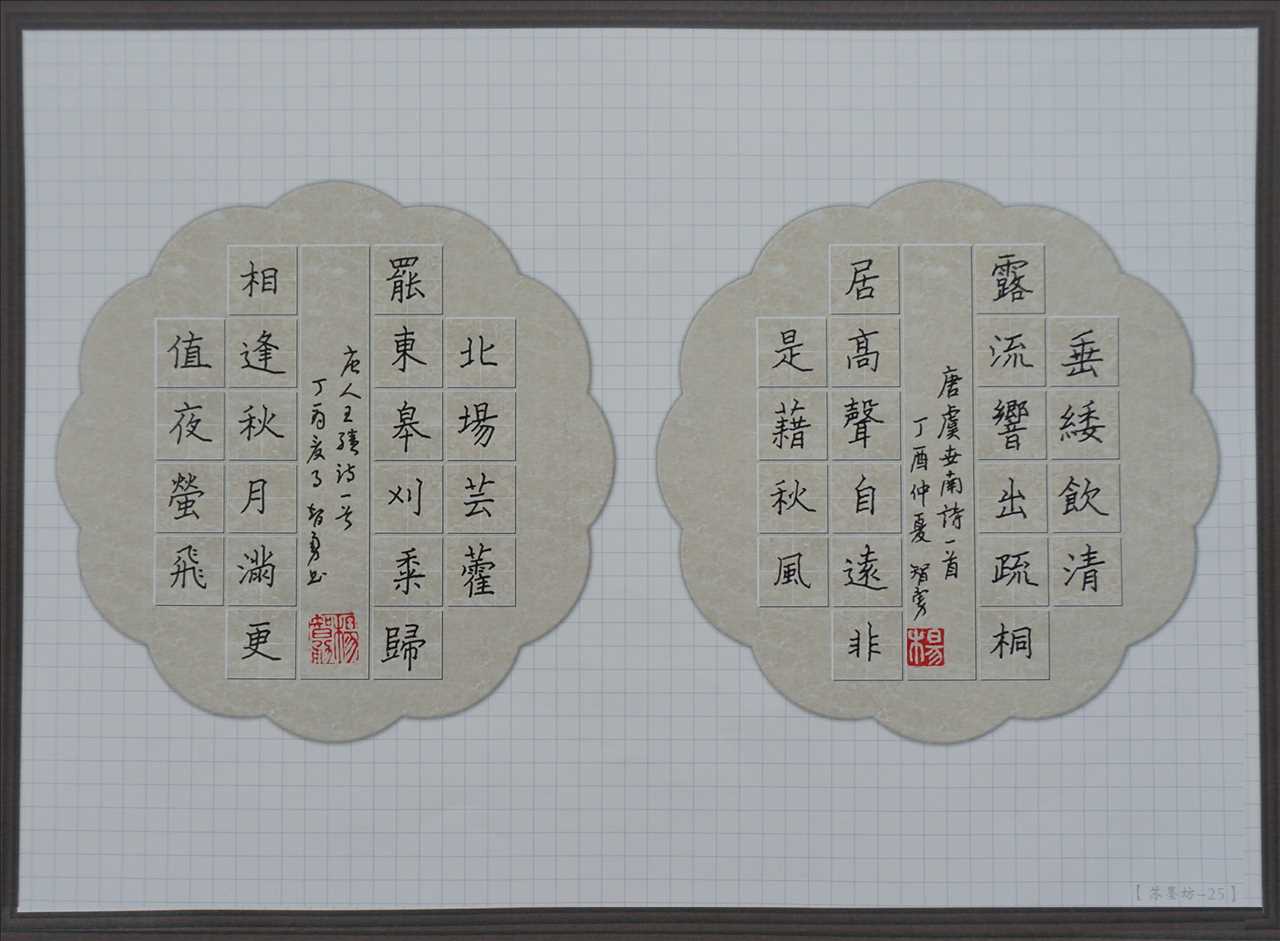 垂緌飲清
露流響出疏桐
唐虞世南詩一首
丁酉仲夏 智勇
楊
居高聲自遠非
是藉秋風
北場芸藿
罷東皋刈黍歸
唐人王績诗一首
丁酉夏月 智勇书
楊智勇
相逢秋月滿更
值夜螢飛
【笨墨坊-25】